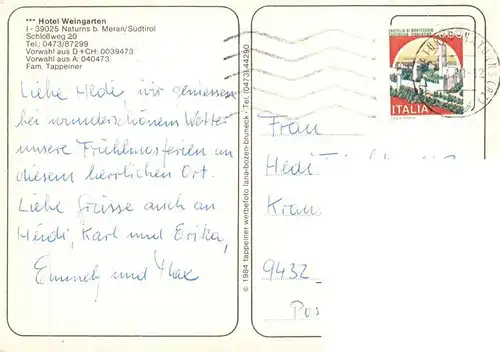 *** Hotel Weingarten
I - 39025 Naturns b. Meran/Südtirol
Schloßweg 20
Tel.: 0473/87299
Vorwahl aus D+CH: 0039473
Vorwahl aus A: 040473
Fam. Tappeiner
Liebe Hedi, wir geniessen
bei wunderschönem Wetter
unsere Frühlingsferien an
diesem herrlichen Ort.
Liebe Grüsse auch an
Heidi, Karl und Erika,
und Max
© 1984 tappeiner werbefoto lana-bozen-bruneck - Tel. (0473) 44290
ITALIA
Frau
Hedi
9432